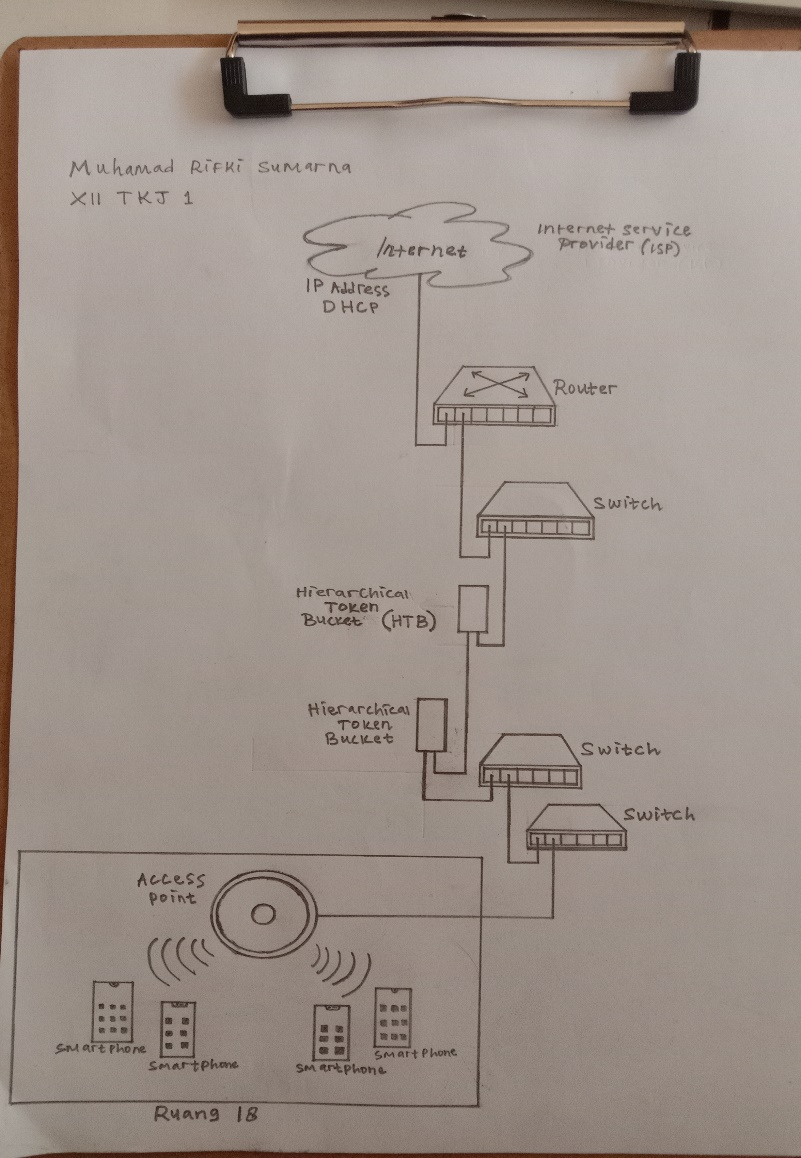 Muhamad Rifki Sumarna
XII TKJ 1
Internet
Internet service
Provider (ISP)
IP Address
DHCP
Router
Switch
Hierarchical
Token
Bucket (HTB)
Hierarchical
Token
Bucket
Switch
Switch
Access
point
smartphone
smartphone
smartphone
smartphone
Ruang 18